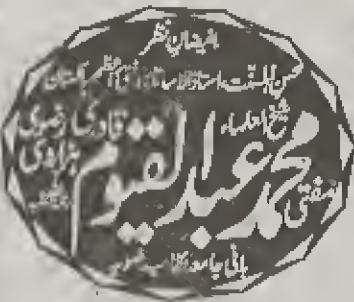 بفیضان نظر
محسن اہلسنت، استاذ الاساتذہ، مفتی اعظم پاکستان
شیخ العلماء
مفتی محمد عبد القیوم قادری رضوی ہزاروی
بانی جامعہ نظامیہ رضویہ